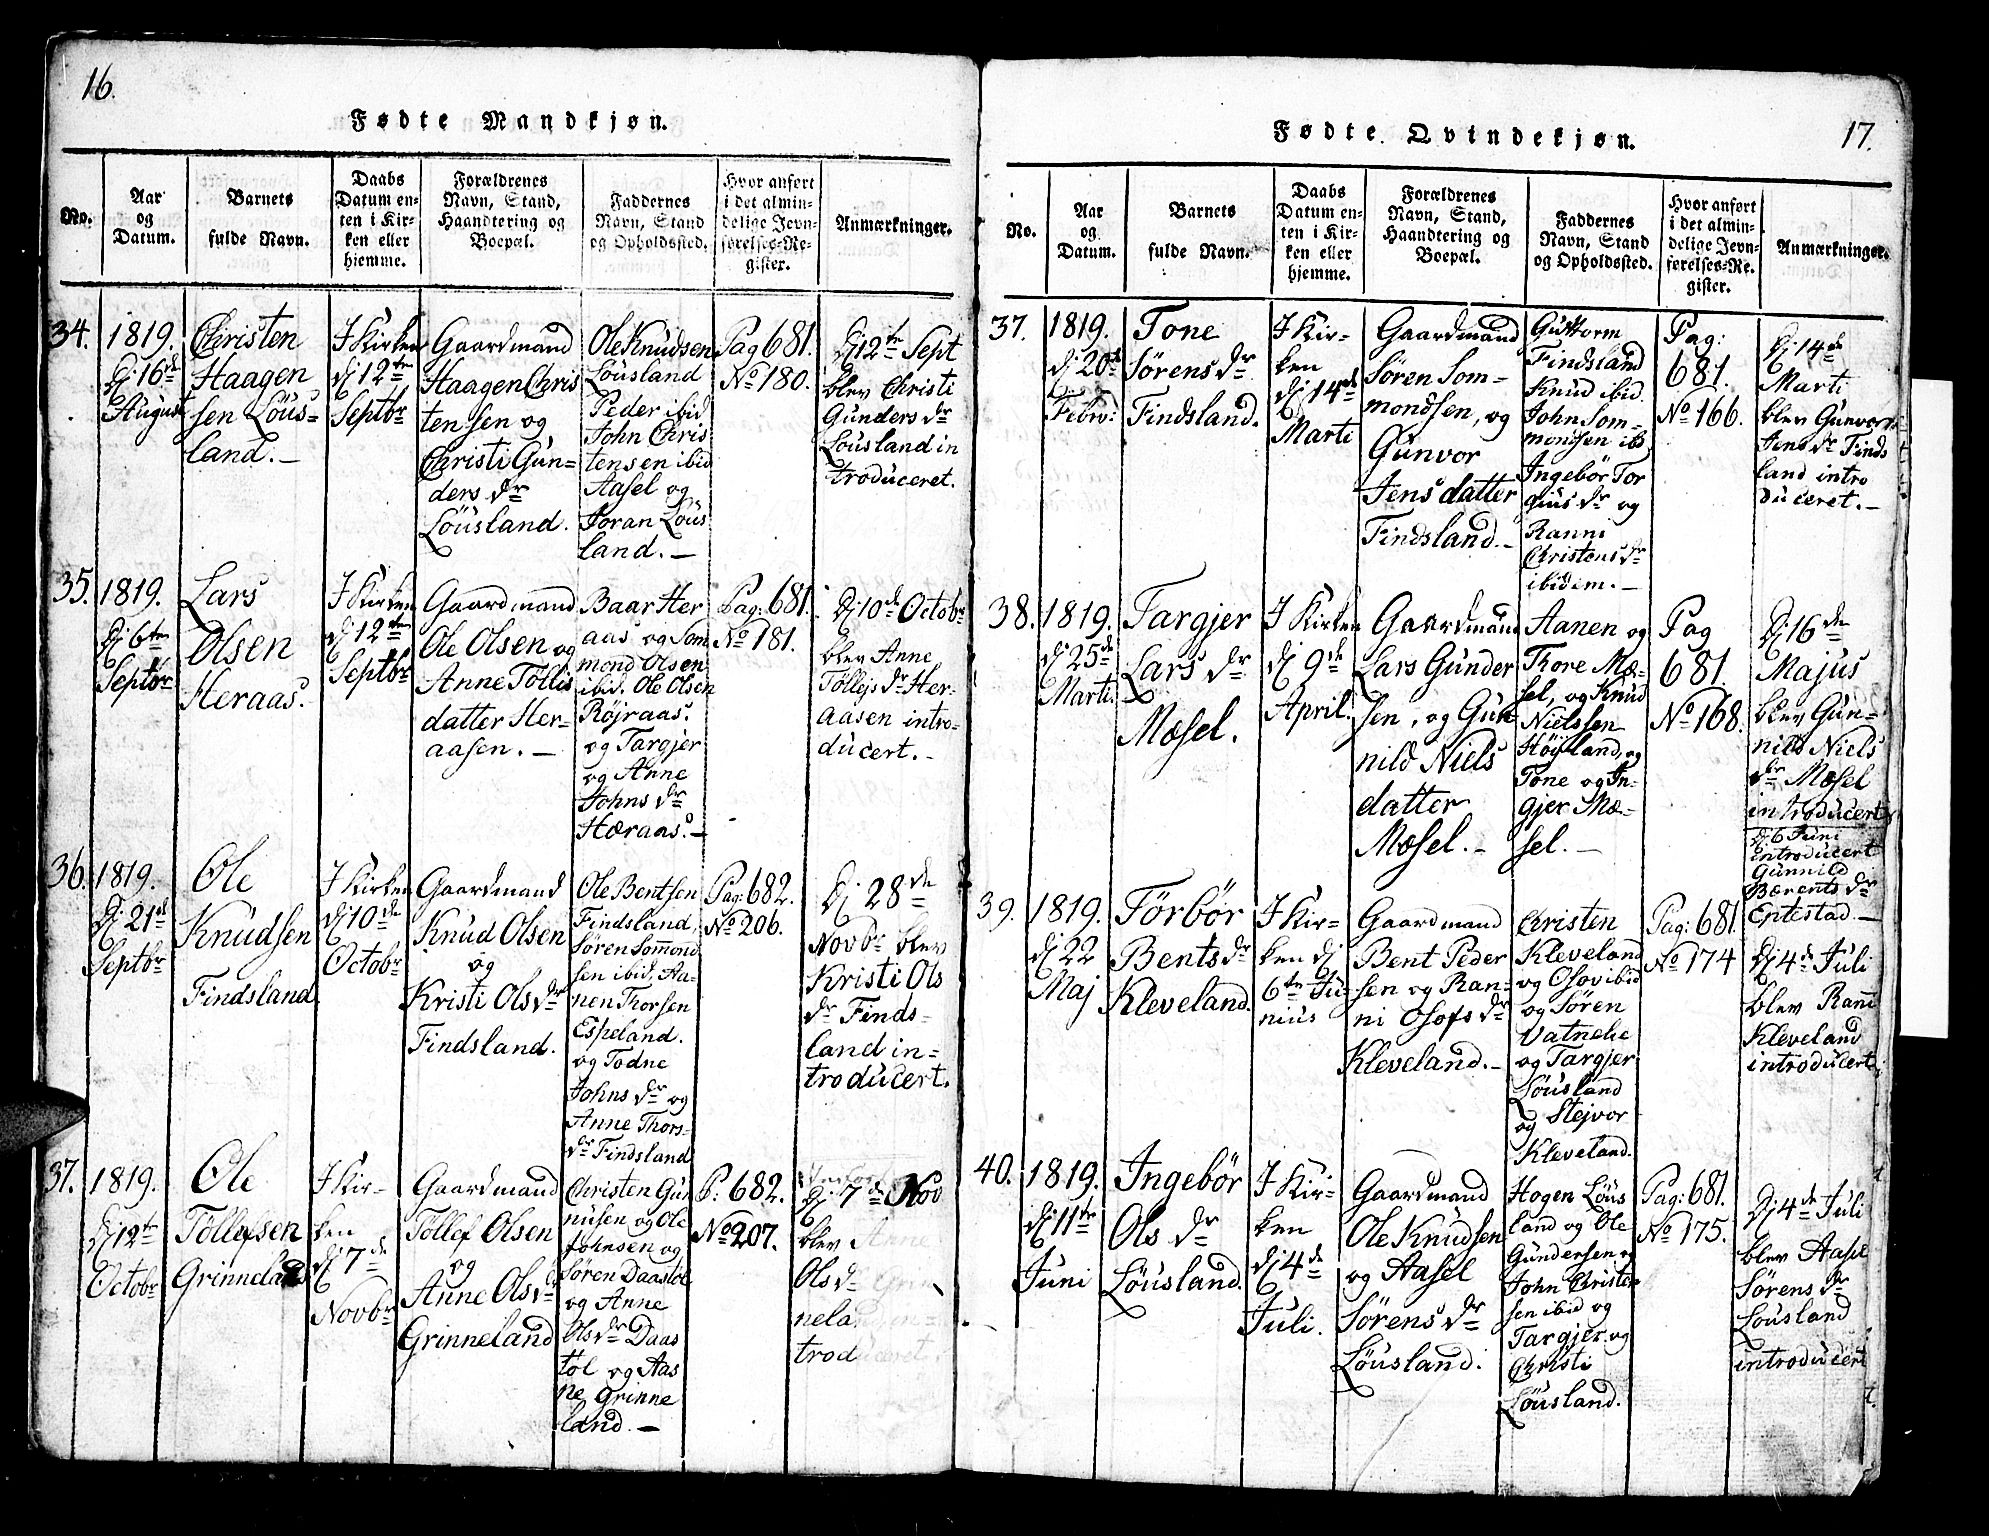 16.
Fødte Mandkjøn.
No.
Aar
og
Datum.
Barnets
fulde Navn.
Daabs
Datum en-
ten i Kir-
ken eller
hjemme.
Forældrenes
Navn, Stand,
Haandtering og
Boepæl.
Faddernes
Navn, Stand
og Opholdssted.
Hvor anført
i det almin-
delige Jevn-
førelses-Re-
gister.
Anmærkninger.
34.
1819.
Dj 16de
August
Christen
Haagen
sen Löus-
land.-
I Kirken
dj 12te
Septbr
Gaardmand
Haagen Chris
tensen og
Christi Gun-
ders dr
Löusland.
Ole Knudsen
Löusland
Peder ibid
John Chris
tensen ibid
Aasel og
Joran Löus
land.-
Pag 681.
No 180.
Dj 12te Sept
blev Christi
Gunders dr
Löusland in
troduceret.
35.
1819.
Dj 6ten
Septbr
Lars
Olsen
Heraas.
I Kirken
dj 12ten
Septbr
Gaardmand
Ole Olsen og
Anne Töllis
datter Her-
aasen.-
Baar Her
aas og Som
mond Olsen
ibid. Ole Olsen
Röjraas.
og Targjer
og Anne
Johns dr
Hæraas.-
Pag: 681.
No 181.
Dj 10de Octobr
blev Anne
Töllejs dr Her-
aasen intro-
ducert.-
36.
1819.
Dj 21de
Septbr
Ole
Knudsen
Findsland
I Kirken
dj 10de
Octobr
Gaardmand
Knud Olsen
og
Kristi Ols dr
Findsland.
Ole Bentsen
Findsland,
Søren Sommond
sen ibid, Aa-
nen Thorsen
Espeland.
og Todne
Johns dr og
Anne Thors-
dr Findsland
Pag: 682.
No 206.
Dj 28de
Novbr blev
Kristi Ols
dr Finds-
land in-
troducert.
37.
1819.
Dj 12te
Octobr
Ole
Töllefsen
Grinneland
I Kir-
ken
dj 7de
Novbr
Gaardmand
Töllef Olsen
og
Anne Ols dr
Grinneland
Christen Gun
nusen og Ole
Johnsen og
Søren Daastöl
og Anne
Ols dr Daas
töl og Aas
ne Grinne
land.-
P: 682.
No 207.
Dj 7de Nov
blev Anne
Ols dr Grin
neland in-
troduceret.
17.
Fødte Qvindekjøn.
No.
Aar
og
Datum.
Barnets
fulde Navn.
Daabs
Datum en-
ten i Kir-
ken eller
hjemme.
Forældrenes
Navn, Stand,
Haandtering og
Boepæl.
Faddernes
Navn, Stand
og Opholdssted.
Hvor anført
i det almin-
delige Jevn-
førelses-Re-
gister.
Anmærkninger.
37.
1819.
dj 20de
Febr:
Tone
Sørens dr
Findsland.
I Kir-
ken
dj 14de
Marti
Gaardmand
Søren Som-
mondsen, og
Gunvor
Jens datter
Findsland.-
Guttorm
Findsland
Knud ibid.
John Som-
mondsen ib
Ingebör Tor
djus dr og
Ranni
Christens dr
ibidem.-
Pag:
681.
No 166.
Dj 14de
Marti
blev Gunvor
Jens dr Finds
land intro
duceret.-
38.
1819.
dj 25de
Marti.
Targjer
Lars dr
Mæsel.
I Kirken
dj 9de
April.
Gaardmand
Lars Gunder
sen, og Gun
nild Niels
datter
Mæsel.-
Aanen og
Thore Mæ-
sel, og Knud
Nielssen
Höjland, og
Tone og In-
gjer Mæ-
sel.-
Pag
681.
No 168.
Dj 16de
Majus
blev Gun-
nild Niels
dr Mæsel
introducert
Dj 6 Juni
introducert
Gunnild
Bærents dr
Entestad.-
39.
1819.
dj 22
Maj
Törbör
Bents dr
Kleveland.
I Kir-
ken dj
6te Ju-
nius
Gaardmand
Bent Peder
sen og Ran-
ni Osofs dr
Kleveland.-
Christen
Kleveland
og Osov ibid
og Søren
Vatnelie
og Targjer
Löusland
og Stejvor
Kleveland.
Pag: 681.
No 174
Dj 4de Juli
blev Rani
Kleveland
introducert
40.
1819.
dj 11te
Juni
Ingebör
Ols dr
Löusland.
I Kir-
ken
dj 4de
Juli.
Gaardmand
Ole Knudsen
og Aasel
Sørens dr
Löusland.
Hogen Löus
land og Ole
Gundersen og
John Christen
sen ibid og
Targjer og
Christi
Löusland.
Pag: 681.
No 175.
Dj 4de Juli
blev Aasel
Sørens dr
Löusland
introducert